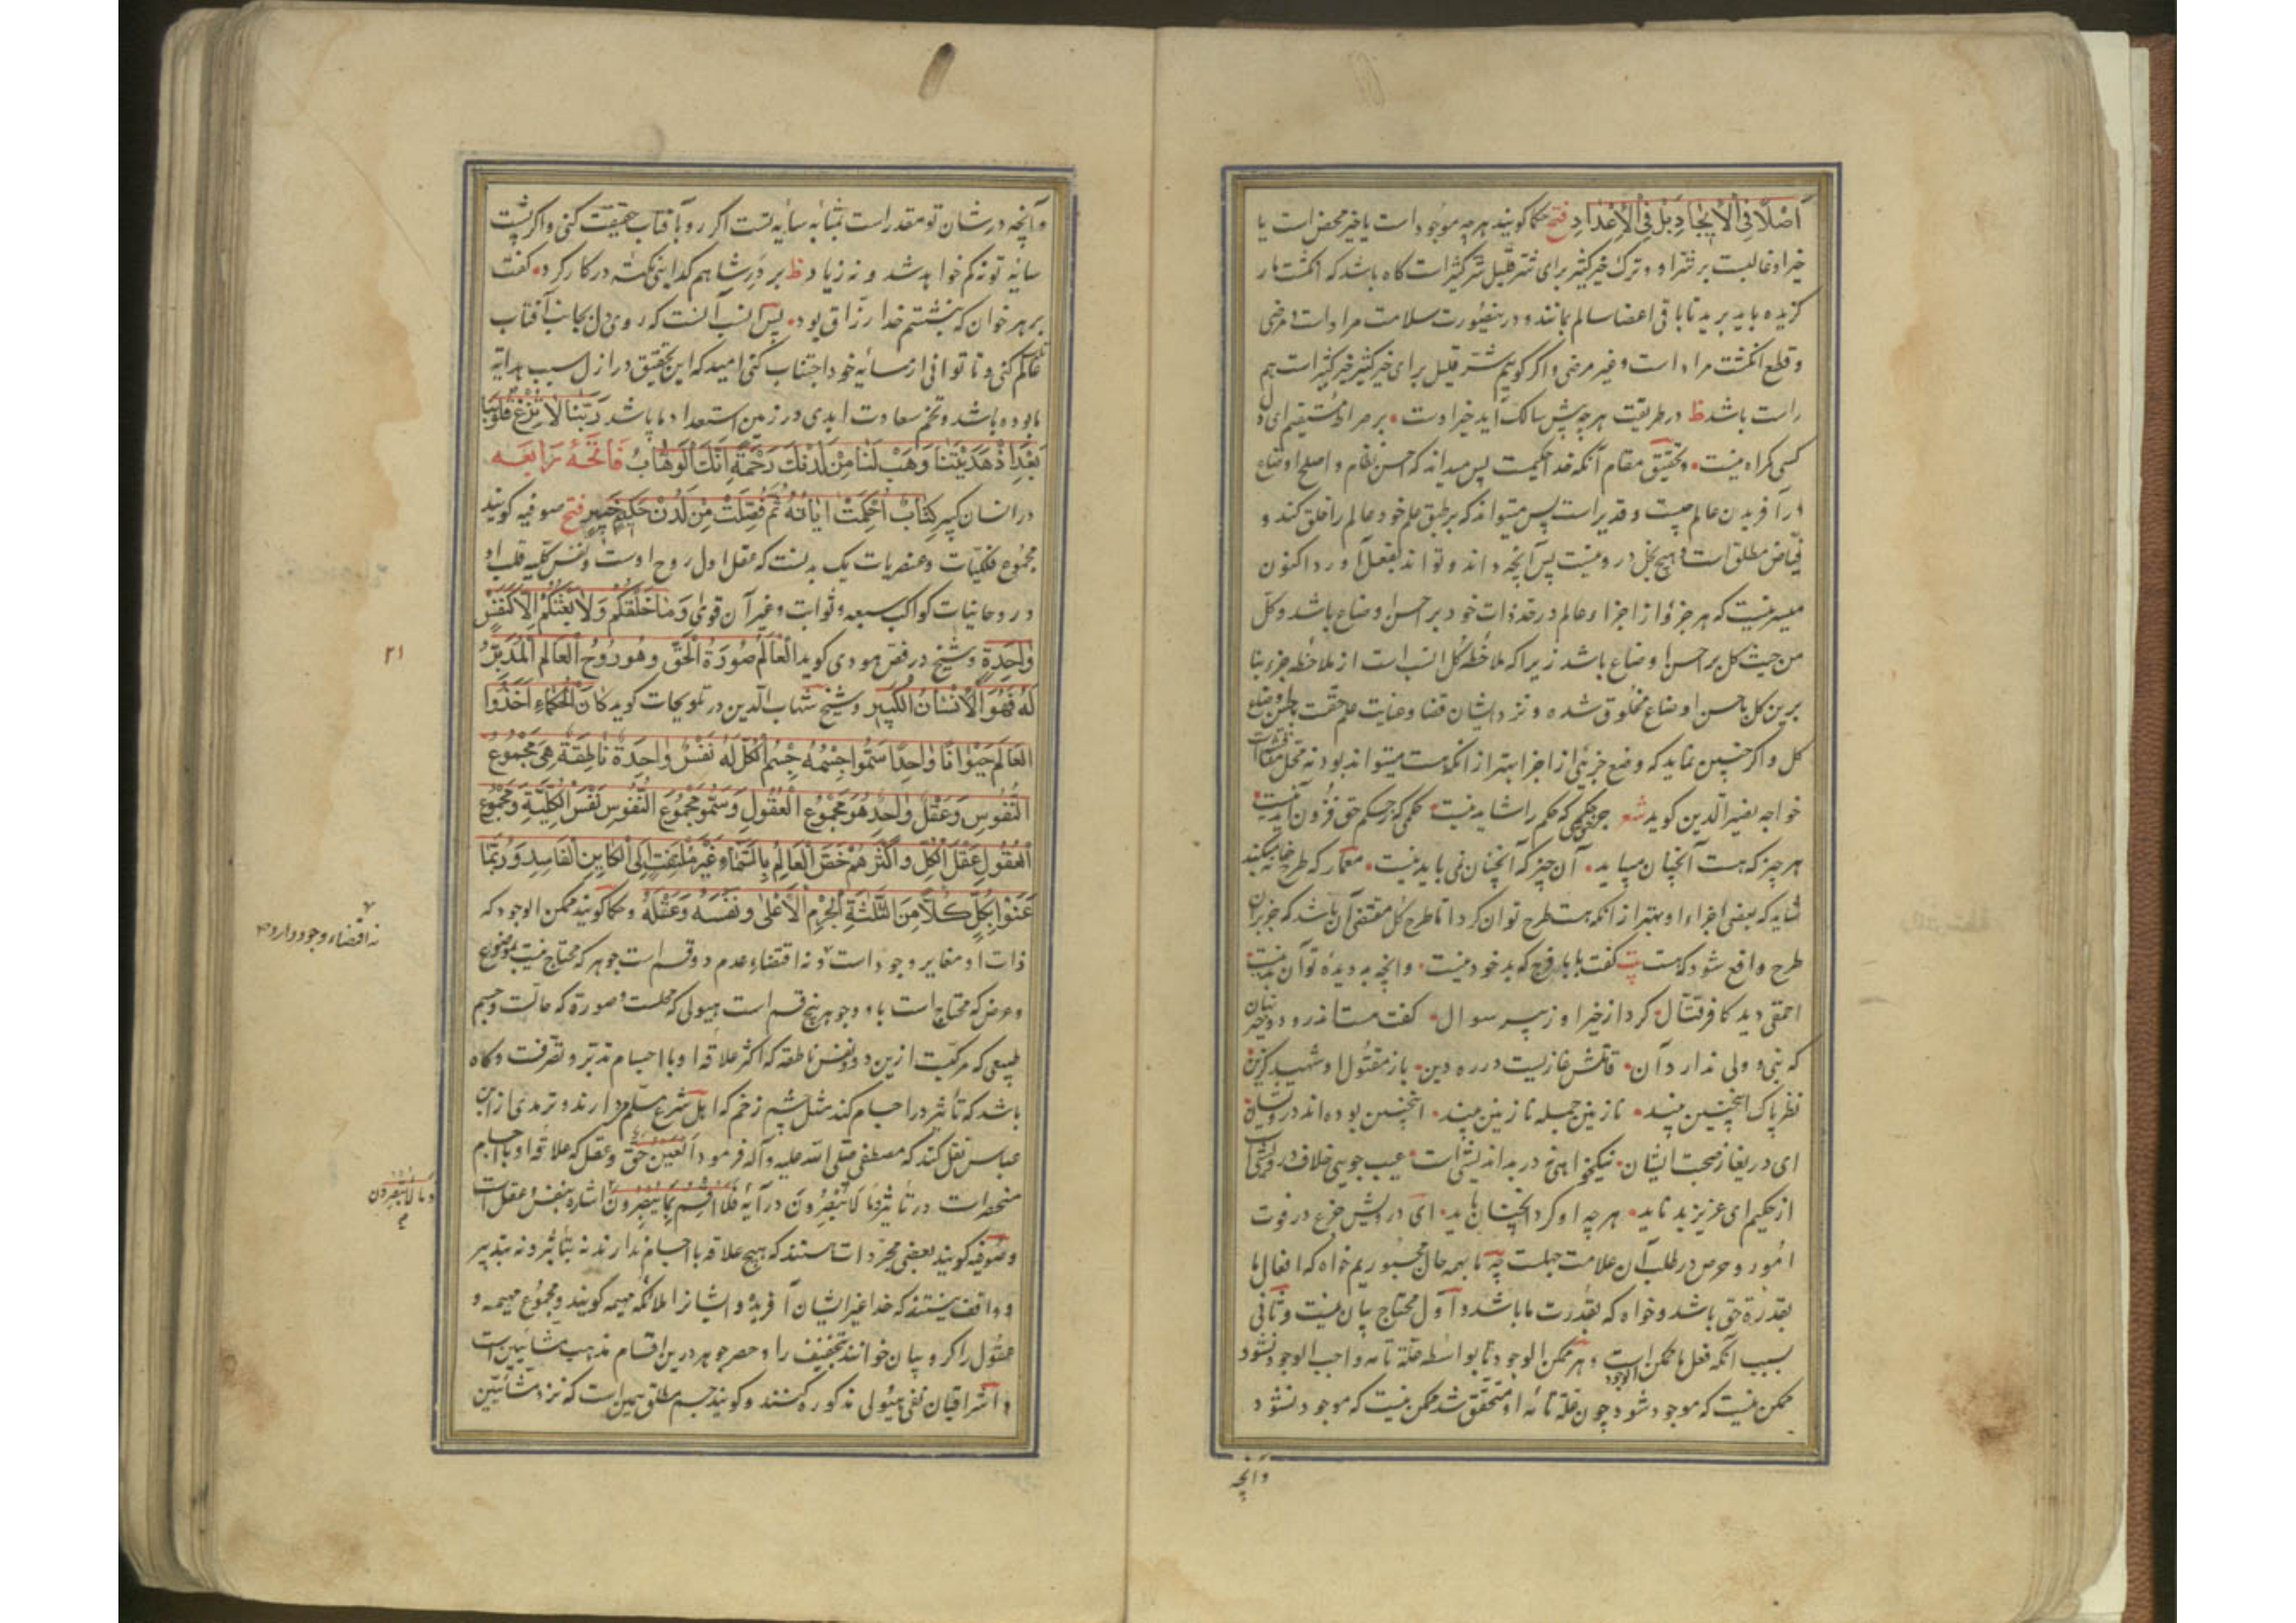 اَصْلًا فِی الْاِیْجَادِ بَلْ فِی الْاِعْدَادِ فتح حکما کویند هر چه موجود است یا خیر محض است یا
خیر او غالبست بر شر او و ترک خیر کثیر برای شر قلیل شر کثیر است کاه باشد که انکشت مار
کزیده باید برید تا باقی اعضا سالم بمانند و درینصورت سلامت مراد است و مرضی
و قطع انکشت مراد است و غیر مرضی و اکر کوییم شر قلیل برای خیر کثیر خیر کثیر است هم
راست باشد ظ در طریقت هر چه پیش سالک آید خیر اوست بر صراط مستقیم ای دل
کسی کمراه نیست و تحقیق مقام آنکه خدا حکیمست پس میداند که احسن نظام و اصلح اوضاع
در آفریدن عالم چیست و قدیر است پس میتواند که بر طبق علم خود عالم را خلق کند و
فیّاض مطلق است و هیچ بخل درو نیست پس آنچه داند و تواند بفعل آورد و اکنون
میسر نیست که هر جزو از اجزاء عالم در حد ذات خود بر احسن اوضاع باشد و کل
من حیث کل بر احسن اوضاع باشد زیرا که ملاحظه کل انسب است از ملاحظه جزء بنا
برین کل باحسن اوضاع مخلوق شده و نزد ایشان قضا و عنایت علم حقست باحسن اوضاع
کل و اکر چنین نماید که وضع جزئی از اجزا بهتر از آنکه هست میتواند بود نه محل مناقشه است
خواجه نصیر الدین کوید شعر جز حکم حقی که حکم را شاید نیست حکمی که ز حکم حق فزون آید نیست
هر چیز که هست آنچنان میباید آن چیز که آنچنان نمی باید نیست معمار که طرح خانه میکند
شاید که بعضی اجزاء او بهتر از آنکه هست طرح توان کرد اما طرح کل مقتضی آن باشد که جزء بران
طرح واقع شود که هست بیت کفت بابا فرج که بد خود نیست وانچه بد دیدهٔ تو آن بد نیست
احمقی دید کافر قتّال کرد از خیر او ز پیر سوال کفت هست اندرو دو چیز نهان
که نبی و ولی ندارد آن قاتلش غازیست در ره دین باز مقتول او شهید کزین
نظر پاک اینچنین بیند نازنین جمله نازنین بیند اینچنین بوده اند درویشان
ای دریغا ز صحبت ایشان نیکخواهی در بداندیشی است عیب جویی خلاف درویشی است
از حکیم ای عزیز بد ناید هر چه او کرد آنچنان باید ای درویش جزع در فوت
امور و حرص در طلب آن علامت جهلست چه ما بهمه حال مجبوریم خواه که افعال ما
بقدرة حق باشد و خواه که بقدرت ما باشد و اول محتاج ببیان نیست و ثانی
بسبب آنکه فعل ما ممکن الوجود است و هر ممکن الوجود تا بواسطه علّة تامه واجب الوجود نشود
ممکن نیست که موجود شود و چون علّة تامهٔ او متحقق شد ممکن نیست که موجود نشود
وآنچه
وآنچه در شان تو مقدر است بمثابهٔ سایهٔ تست اکر رو بآفتاب حقیقت کنی و اکر پشت
سایهٔ تو نه کم خواهد شد و نه زیاد ظ بر در شاهم کدایی نکتهٔ در کار کرد کفت
بر هر خوان که بنشستم خدا رزاق بود پس انسب آنست که روی دل بجانب آفتاب
عالم کنی و تا توانی از سایه خود اجتناب کنی امید که این تحقیق در ازل سبب هدایة
ما بوده باشد و تخم سعادت ابدی در زمین استعداد ما پاشد رَبَّنَا لَا تُزِغْ قُلُوبَنَا
بَعْدَ اِذْ هَدَیْتَنَا وَهَبْ لَنَا مِنْ لَدُنْكَ رَحْمَةً اِنَّكَ اَنْتَ الْوَهَّابُ فَاتِحَهٔ رَابِعَه
در انسان کبیر کِتَابٌ اُحْکِمَتْ اٰیَاتُهُ ثُمَّ فُصِّلَتْ مِنْ لَدُنْ حَکِیْمٍ خَبِیْرٍ فتح صوفیه کویند
مجموع فلکیّات و عنصریات یک بدنست که عقل اول روح اوست و نفس کلیه قلب او
و روحانیات کواکب سبعه و ثوابت و غیر آن قوی وَمَا خَلْقُکُمْ وَلَا بَعْثُکُمْ اِلَّا کَنَفْسٍ
وَاحِدَةٍ و شیخ در فص هودی کوید اَلْعَالَمُ صُوْرَةُ الْحَقِّ وَهُوَ رُوْحُ الْعَالَمِ الْمُدَبِّرُ
لَهُ فَهُوَ الْاِنْسَانُ الْکَبِیْرُ و شیخ شهاب الدین در تلویحات کوید کَانَ الْحُکَمَاءُ اَخَذُوا
الْعَالَمَ حَیَوَانًا وَاحِدًا سَمُّوا جِسْمَهُ جِسْمَ الْکُلِّ لَهُ نَفْسٌ وَاحِدَةٌ نَاطِقَةٌ هِیَ مَجْمُوْعُ
النُّفُوْسِ وَعَقْلٌ وَاحِدٌ هُوَ مَجْمُوْعُ الْعُقُوْلِ وَسَمُّوْا مَجْمُوْعَ النُّفُوْسِ نَفْسَ الْکُلِّیَّةِ وَمَجْمُوْعَ
الْعُقُوْلِ عَقْلَ الْکُلِّ وَاَکْثَرُهُمْ خَصَّ الْعَالَمَ بِالسَّمَاءِ غَیْرَ مُلْتَفِتٍ اِلَی الْکَایِنِ الْفَاسِدِ وَرُبَّمَا
عَنَوْا بِکُلٍّ کُلًّا مِنَ الثَّلٰثَةِ الْجِرْمِ الْاَعْلٰی وَنَفْسِهُ وَعَقْلِهُ و حکما کویند ممکن الوجود که
ذات او مغایر وجود است و نه اقتضاء عدم دو قسم است جوهر که محتاج نیست بموضوع
و عرض که محتاج است باو و جوهر پنج قسم است هیولی که محلست و صورة که حالّست و جسم
طبیعی که مرکبست ازین دو و نفس ناطقه که اکثر علاقهٔ او با اجسام تدبّر و تصرّفت و کاه
باشد که تاثیر در اجسام کند مثل چشم زخم که اهل شرع مسلّم دارند و ترمذی از ابن
عباس نقل کند که مصطفی صلی الله علیه و آله فرمود اَلْعَیْنُ حَقٌّ و عقل که علاقه او با اجسام
منحصر است در تاثیر و مَا لَا تُبْصِرُوْنَ در آیهٔ فَلَا اُقْسِمُ بِمَا تُبْصِرُوْنَ اشاره بنفس و عقل است
و صوفیه کویند بعضی مجرّدات هستند که هیچ علاقه با اجسام ندارند نه بتاثیر و نه بتدبیر
و واقف نیستند که خدا غیر ایشان آفریده و ایشانرا ملائکه مهیمه کویند و مجموع مهیمه و
عقول را کروبیان خوانند بتخفیف را و حصر جوهر درین اقسام مذهب مشائیین است
و اشراقیان نفی هیولی مذکوره کنند و کویند جسم مطلق همین است که نزد مشائیین
۲۱
نه اقتضاء وجود دارد
وَمَا لَا تُبْصِرُوْنَ